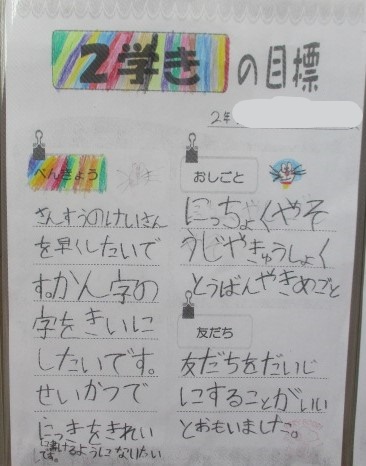 2学き の目標
2年
べんきょう
さんすうのけいさん
を早くしたいで
す。かん字の
字をきいに
したいです。
せいかつで
にっきをきれい
に書けるようになりたい
です。
おしごと
にっちょくやそ
うじやきゅうしょく
とうばんやきめごと
友だち
友だちをだいじ
にすることがいい
とおもいました。